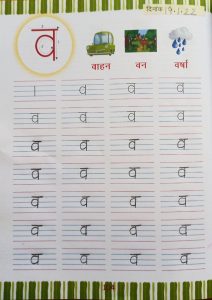 दिनांक 9.1.22
व
वाहन वन वर्षा
। व व व
व व व व
व व व व
व व व व
व व व व
व व व व
व व व व